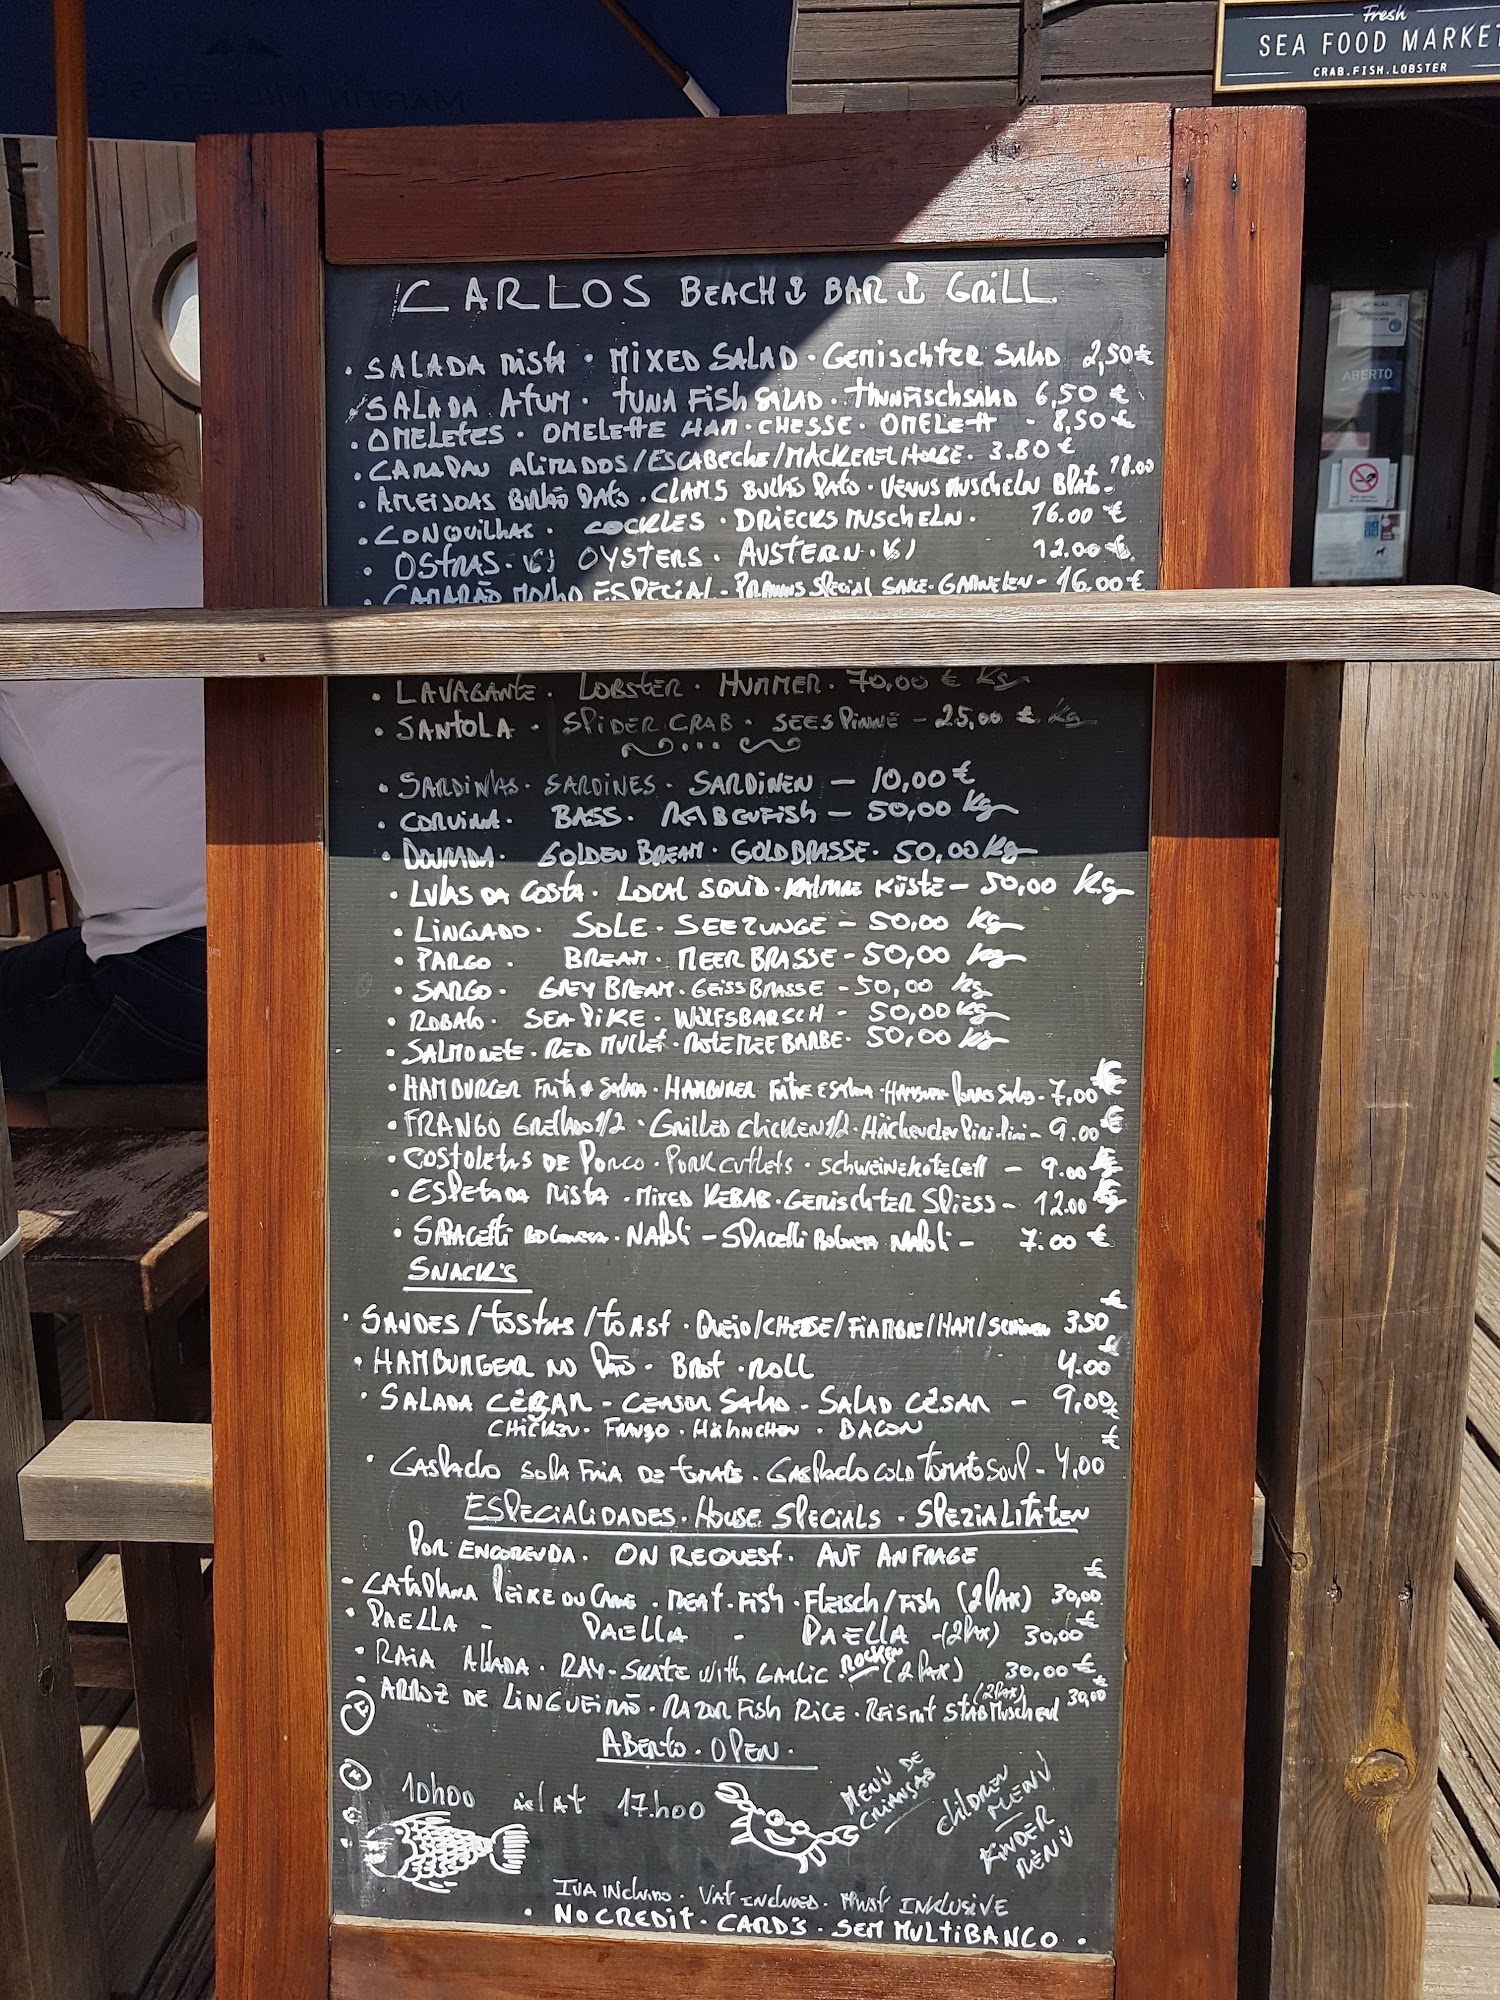 Fresh
SEA FOOD MARKET
CRAB.FISH.LOBSTER
MARTIN MILLER'S
ABERTO
CARLOS BEACH BAR GRILL
· SALADA MISTA · MIXED SALAD · GEMISCHTER SALAD 2,50 €
· SALADA ATUM · TUNA FISH SALAD · THUNFISCHSALAD 6,50 €
· OMELETES · OMELETTE HAM · CHESSE · OMELETT - 8,50 €
· ALIMADOS/ESCABECHE/MACKEREL 3.80 €
· AMEIJOAS BULHÃO PATO · CLAMS BULHÃO PATO · VENUSMUSCHELN BPATO - 18.00
· CONQUILHAS · COCKLES · DRIECKSMUSCHELN · 16.00 €
· OSTRAS · OYSTERS · AUSTERN · 12.00 €
· CAMARÃO MOLHO ESPECIAL · PRAWNS SPECIAL SAKE · GARNELEN - 16,00 €
· LAVAGANTE · LOBSTER · HUMMER · 70,00 € Kg
· SANTOLA · SPIDER CRAB · SEESPINNE - 25,00 € Kg
· SARDINHAS · SARDINES · SARDINEN - 10,00 €
· CORVINA · BASS · - 50,00 Kg
· DOURADA · GOLDEN BREAM · GOLDBRASSE · 50,00 Kg
· LULAS DA COSTA · LOCAL SQUID · KALMARE KÜSTE - 50,00 Kg
· LINGUADO · SOLE · SEEZUNGE - 50,00 Kg
· PARGO · BREAM · MEERBRASSE - 50,00 Kg
· SARGO · GREY BREAM · GEISSBRASSE - 50,00 Kg
· ROBALO · SEA PIKE · WOLFSBARSCH - 50,00 Kg
· SALMONETE · RED MULLET · ROTEMEEBARBE · 50,00 Kg
· HAMBURGER SALADA · HAMBURGER - 7,00 €
· FRANGO GRELHADO 1/2 · GRILLED CHICKEN 1/2 · PIRI-PIRI - 9.00 €
· COSTOLETAS DE PORCO · PORK CUTLETS · SCHWEINEKOTELETT - 9.00 €
· ESPETADA MISTA · MIXED KEBAB · GEMISCHTER SPIESS - 12.00 €
· SPAGETTI BOLOGNESA · NAPOLI - SPAGETTI BOLOGNESA NAPOLI - 7.00 €
SNACK'S
· SANDES/TOSTAS/TOAST · QUEIJO/CHEESE/FIAMBRE/HAM/SCHINKEN 3.50 €
· HAMBURGER NO PÃO · BROT · ROLL 4.00 €
· SALADA CÉSAR - CEASAR SALAD · SALAD CÉSAR - 9,00 €
CHICKEN · FRANGO · HÄHNCHEN · BACON
· GASPACHO SOPA FRIA DE TOMATE · GASPACHO COLD TOMATO SOUP - 4,00 €
ESPECIALIDADES · HOUSE SPECIALS · SPEZIALITÄTEN
POR ENCOMENDA · ON REQUEST · AUF ANFRAGE
- CATAPLANA PEIXE OU CARNE · MEAT · FISH · FLEISCH/FISH (2 PAX) 30,00 €
· PAELLA - PAELLA - PAELLA - (2 PAX) 30,00 €
· RAIA ALHADA · RAY-SKATE WITH GARLIC · ROCHEN (2 PAX) 30,00 €
· ARROZ DE LINGUEIRÃO · RAZOR FISH RICE · REIS MIT STABMUSCHELN (2 PAX) 30,00 €
ABERTO · OPEN ·
10h00 17.h00
MENÚ DE CRIANÇAS
CHILDREN MENÚ
KINDER MENÚ
IVA INCLUIDO · VAT INCLUDED · MWST INKLUSIVE
· NO CREDIT · CARD'S · SEM MULTIBANCO ·